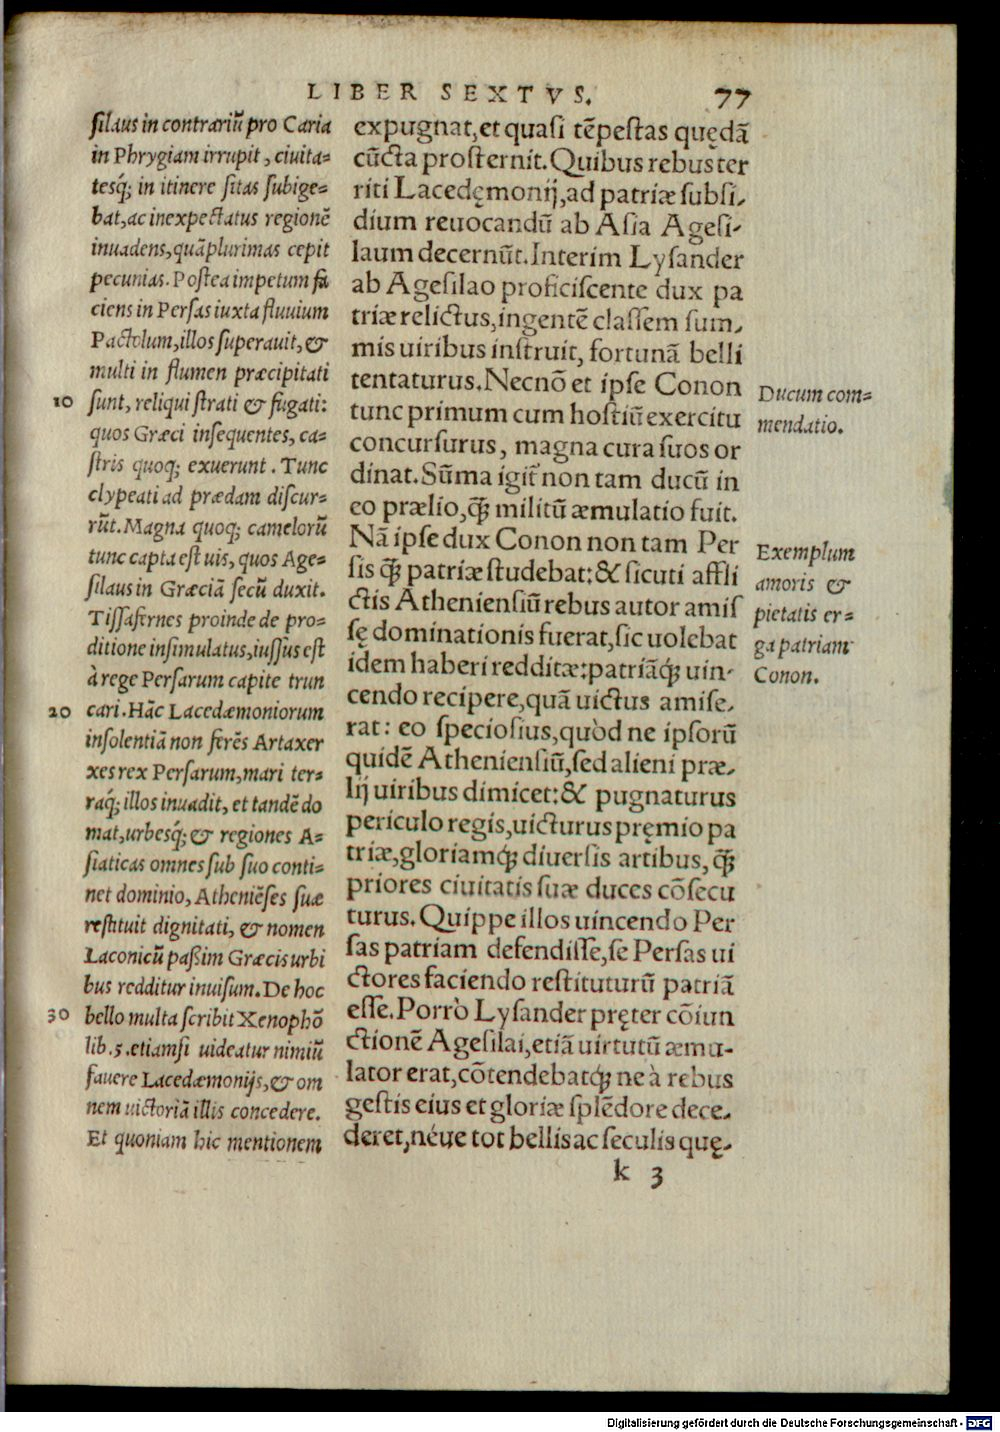 LIBER SEXTVS.
77
silaus in contrariũ pro Caria
in Phrygiam irrupit, ciuita-
tesq́; in itinere sitas subige-
bat, ac inexpectatus regionē
inuadens, quāplurimas cepit
pecunias. Postea impetum fa
ciens in Persas iuxta fluuium
Pactolum, illos superauit, &
multi in flumen præcipitati
10 sunt, reliqui strati & fugati:
quos Græci insequentes, ca-
stris quoq; exuerunt. Tunc
clypeati ad prædam discur-
rūt. Magna quoq; camelorū
tunc capta est uis, quos Age-
silaus in Græciā secū duxit.
Tissafernes proinde de pro-
ditione insimulatus, iussus est
à rege Persarum capite trun
20 cari. Hāc Lacedæmoniorum
insolentiā non ferēs Artaxer
xes rex Persarum, mari ter-
raq́; illos inuadit, et tandē do
mat, urbesq́; & regiones A-
siaticas omnes sub suo conti-
net dominio, Atheniēses suæ
restituit dignitati, & nomen
Laconicū paßim Græcis urbi
bus redditur inuisum. De hoc
30 bello multa scribit Xenophō
lib. 5. etiamsi uideatur nimiū
fauere Lacedæmonijs, & om
nem uictoriā illis concedere.
Et quoniam hic mentionem
expugnat, et quasi tēpestas quędā
cūcta prosternit. Quibus rebus ter
riti Lacedęmonij, ad patriæ subsi-
dium reuocandū ab Asia Agesi-
laum decernūt. Interim Lysander
ab Agesilao proficiscente dux pa
triæ relictus, ingentē classem sum-
mis uiribus instruit, fortunā belli
tentaturus. Necnō et ipse Conon
tunc primum cum hostiū exercitu
concursurus, magna cura suos or
dinat. Sūma igit̃ non tam ducū in
eo prælio, q̃ꝫ militū æmulatio fuit.
Nā ipse dux Conon non tam Per
sis q̃ꝫ patriæ studebat: & sicuti affli
ctis Atheniensiū rebus autor amis
sę dominationis fuerat, sic uolebat
idem haberi redditæ: patriāq́ꝫ uin-
cendo recipere, quā uictus amise-
rat: eo speciosius, quòd ne ipsorū
quidē Atheniensiū, sed alieni præ-
lij uiribus dimicet: & pugnaturus
periculo regis, uicturus pręmio pa
triæ, gloriamq́ꝫ diuersis artibus, q̃ꝫ
priores ciuitatis suæ duces cōsecu
turus. Quippe illos uincendo Per
sas patriam defendisse, se Persas ui
ctores faciendo restituturū patriā
esse. Porrò Lysander pręter cōiun
ctionē Agesilai, etiā uirtutū æmu-
lator erat, cōtendebatq́ꝫ ne à rebus
gestis eius et gloriæ splēdore dece-
deret, néue tot bellis ac seculis quę-
k 3
Ducum com-
mendatio.
Exemplum
amoris &
pietatis er-
ga patriam
Conon.
Digitalisierung gefördert durch die Deutsche Forschungsgemeinschaft - DFG